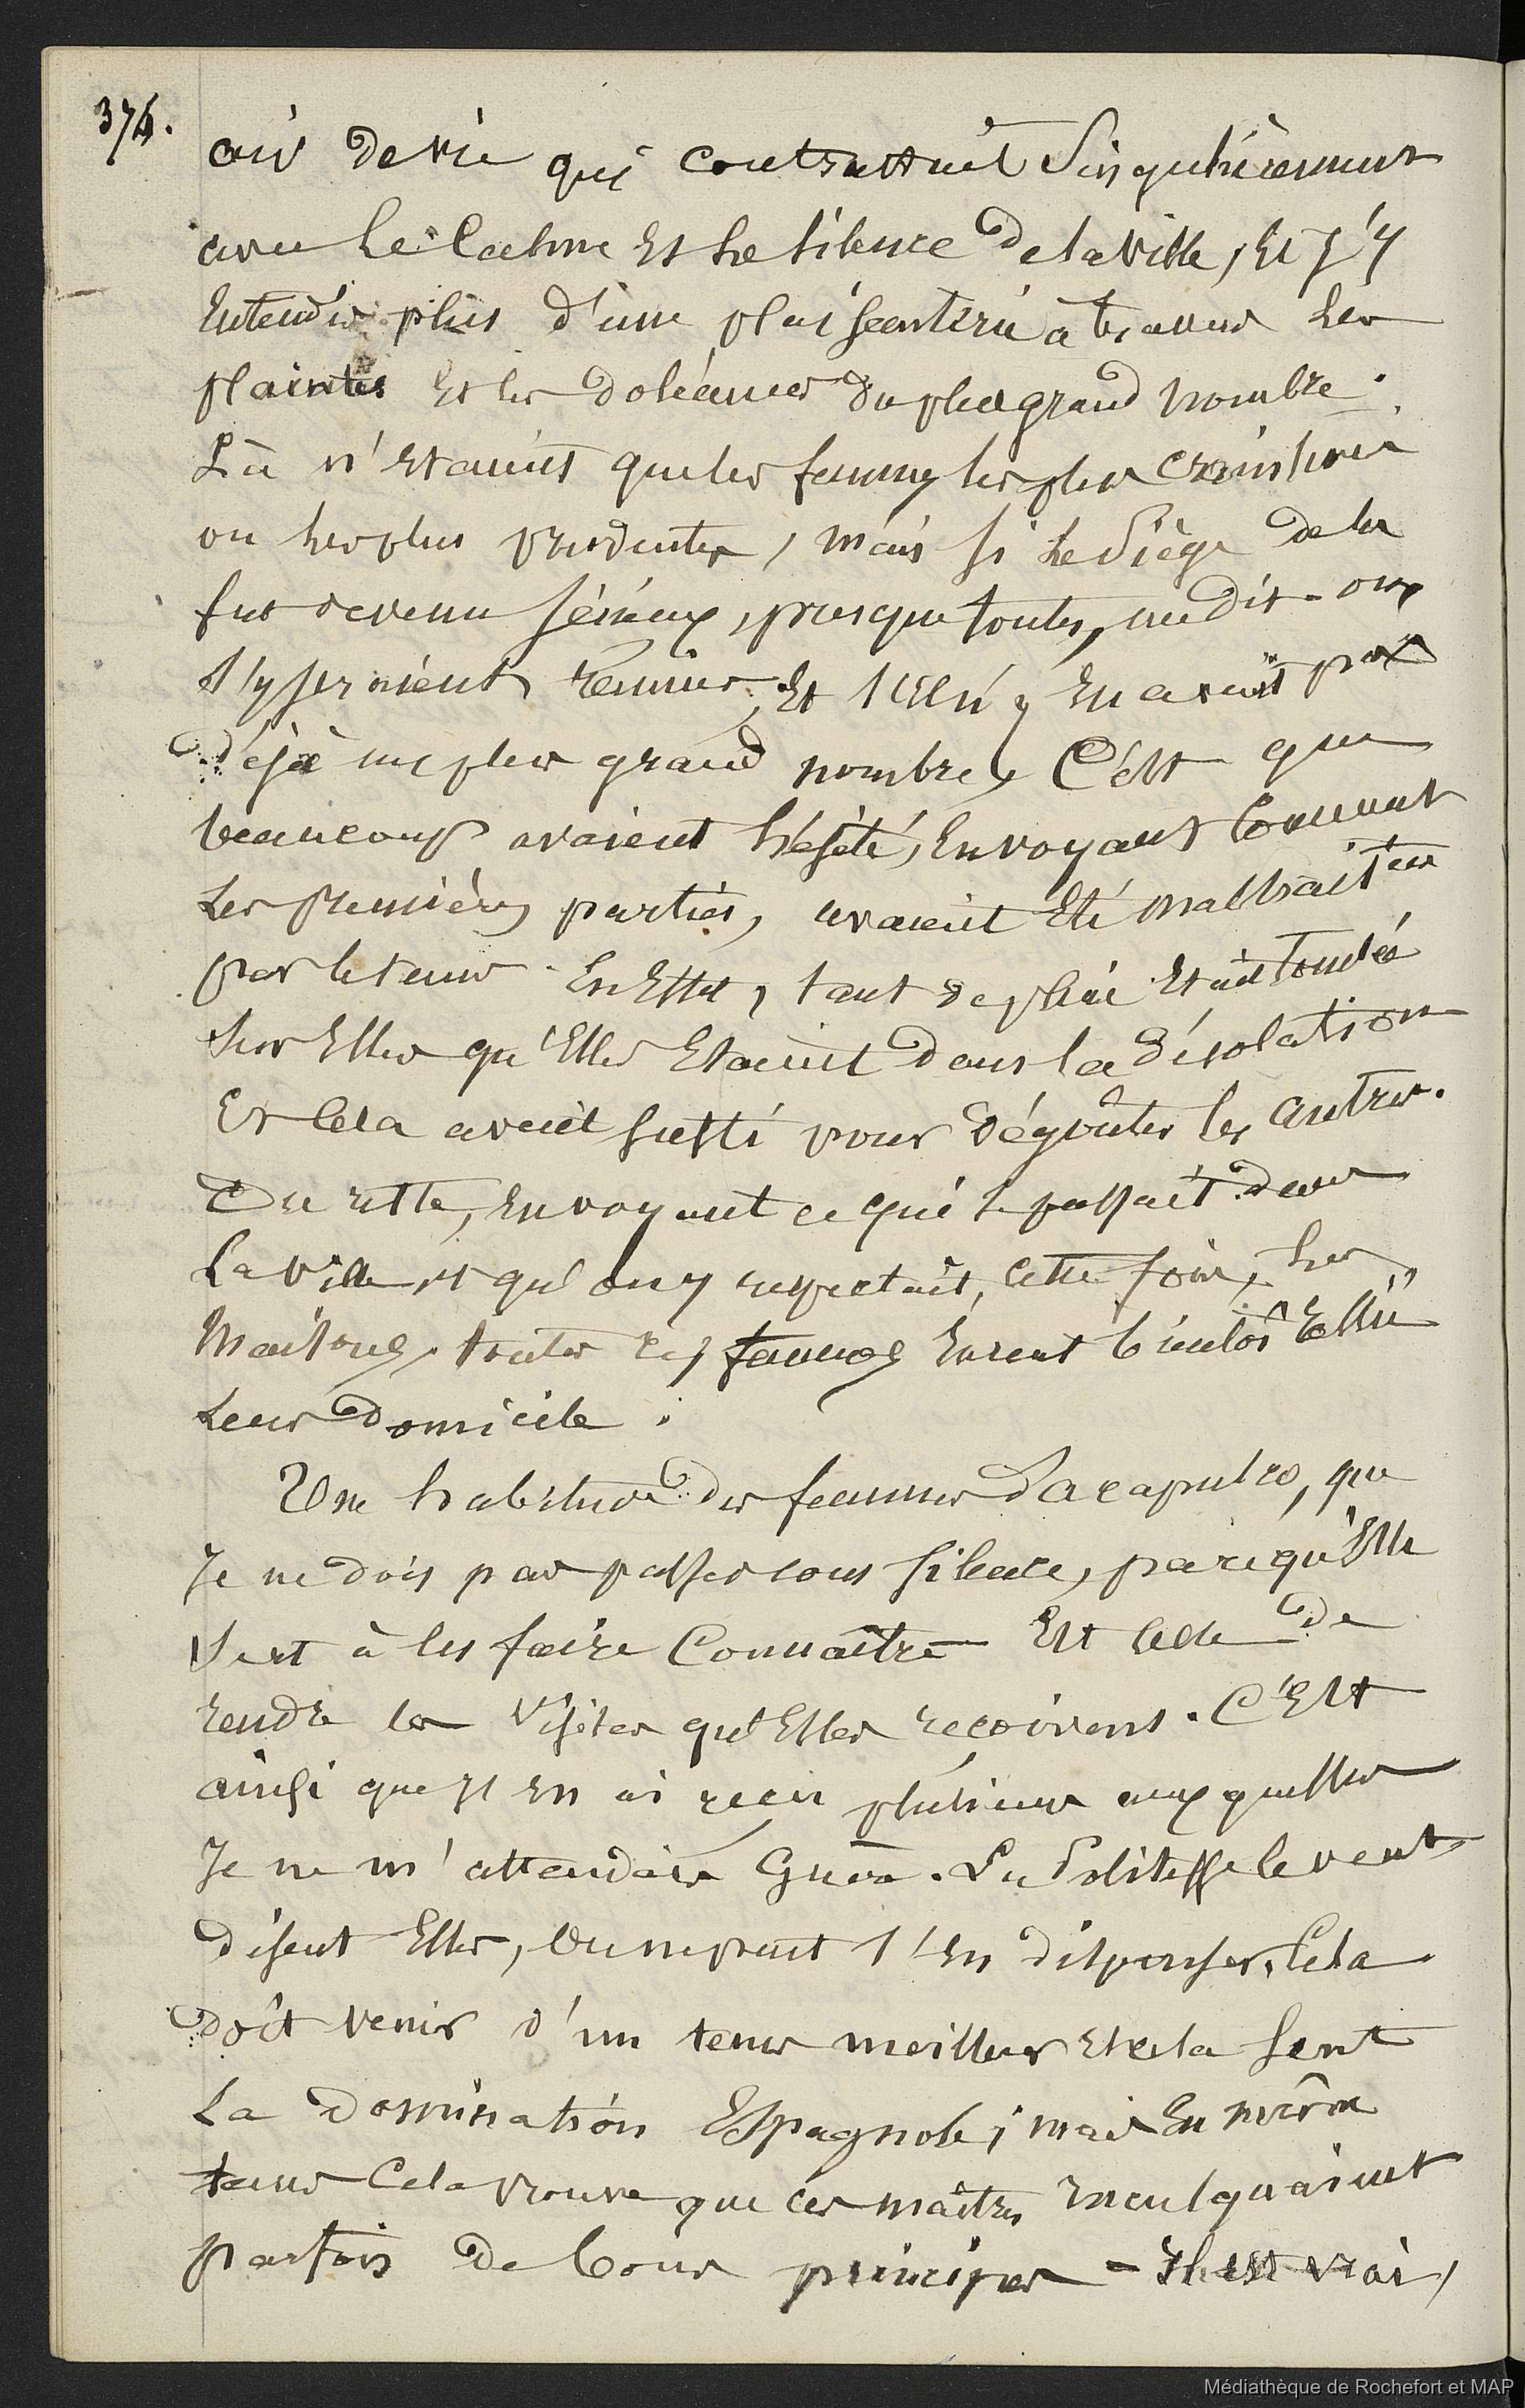 374.
air de vie qui contrastait singulièrement
avec le calme et le silence de la ville, et j'y
entendis plus d'une plaisanterie à travers les
plaintes et les doléances du plus grand nombre.
Là n'étaient que les femmes les plus craintives
ou les plus prudentes, mais si le siège de la
fut devenu sérieux, presque toutes, me dit-on,
s'y seraient réunies, et s'il n'y en avait pas
déjà un plus grand nombre, c'est que
beaucoup avaient hésité, en voyant comment
les premières parties, avaient été maltraitées
par le tems. En effet, tant de pluie était tombée
sur elles qu'elles étaient dans la désolation
et cela avait suffi pour dégoûter les autres.
Du reste, en voyant ce qui se passait dans
la ville et qu'on y respectait, cette fois, les
maisons, toutes ces femmes eurent bientôt
leur domicile.
Une habitude des femmes d'acapulco, que
je ne dois pas passer sous silence, parcequ'elle
sert à les faire connaître est celle de
rendre les visites qu'elles reçoivent. C'est
ainsi que j'en ai reçu plusieurs auxquelles
je ne m'attendais guère. La politesse le veut
disent elles, on ne peut s'en dispenser. Cela
doit venir d'un tems meilleur et cela sent
la domination Espagnole; mais en même
tems cela prouve que ces maîtres inculquaient
parfois de bons principes - Il est vrai,
Médiathèque de Rochefort et MAP